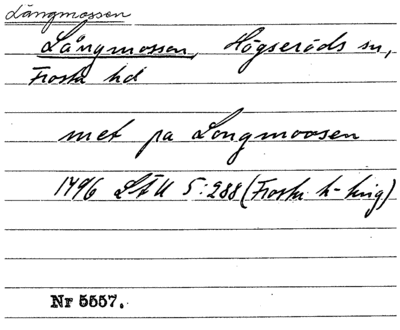 Långmossen
Långmossen, Högseröds sn,
Frosta hd
met pa Longmoosen
1746 LÄU 5:288 (Frosta h-ting)
Nr 5557.